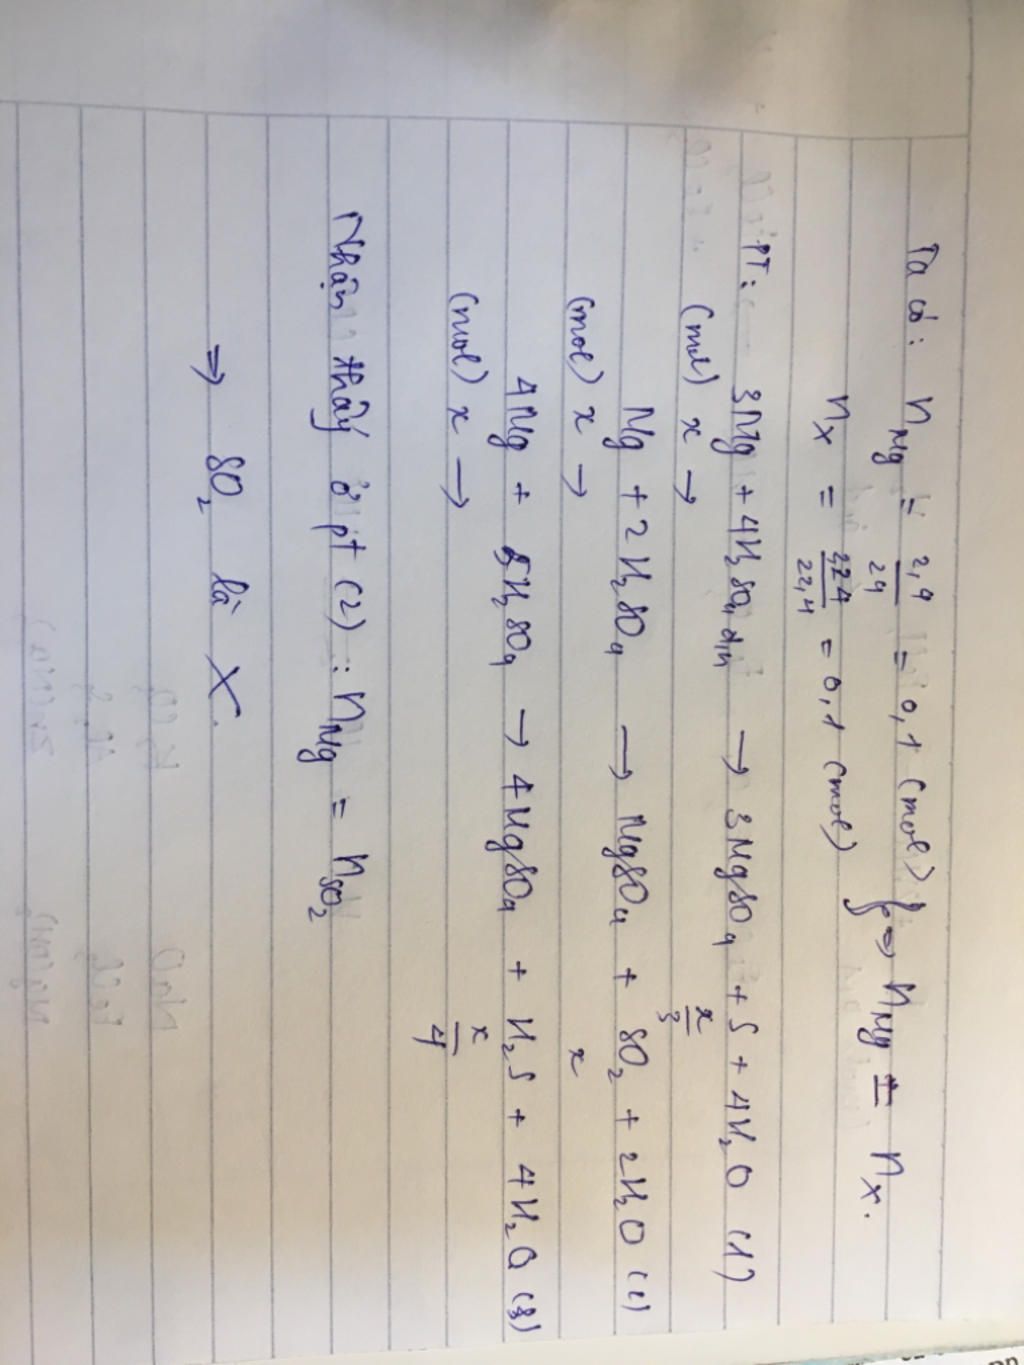 Ta có: n_Mg = 2,4/24 = 0,1 (mol)
n_X = 2,24/22,4 = 0,1 (mol) } => n_Mg = n_X.
PT: 3Mg + 4H₂SO₄ đ,n → 3MgSO₄ + S + 4H₂O (1)
(mol) x → x/3
Mg + 2H₂SO₄ → MgSO₄ + SO₂ + 2H₂O (2)
(mol) x → x
4Mg + 5H₂SO₄ → 4MgSO₄ + H₂S + 4H₂O (3)
(mol) x → x/4
Nhận thấy ở pt (2): n_Mg = n_SO₂
=> SO₂ là X.